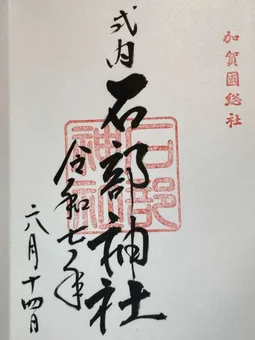 加賀國総社
式内
石部神社
石部
神社
令和七年
六月十四日